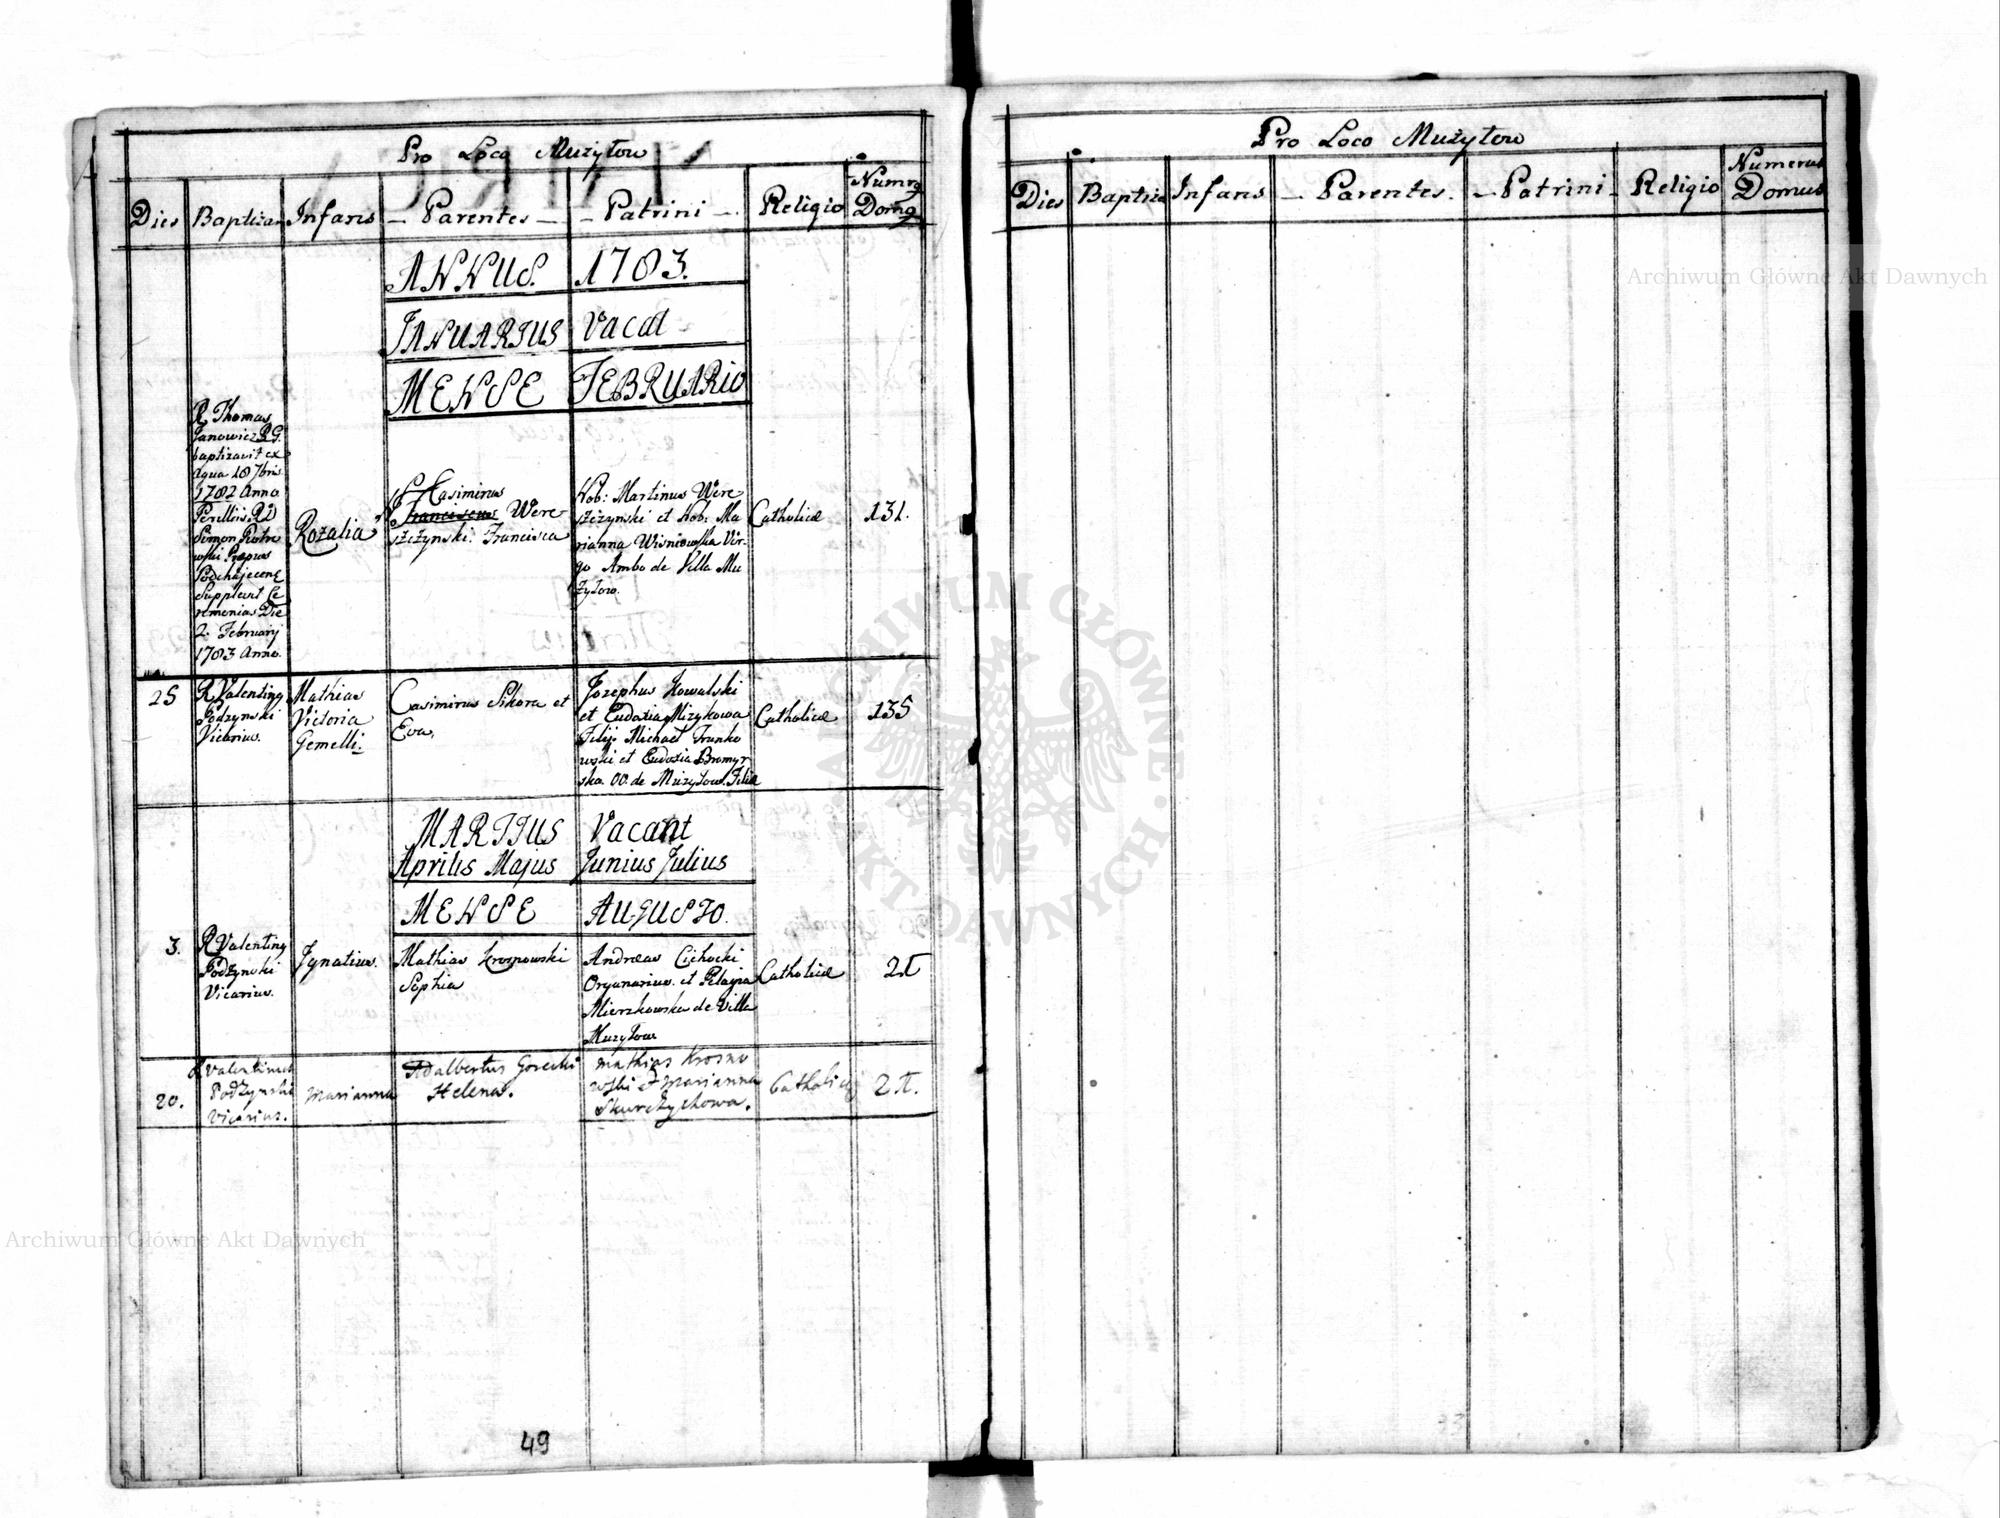 Pro Loco Mużytow
Dies Baptizans Infans Parentes Patrini Religio Numrg Domg
ANNUS. 1783.
JANUARIUS Vacat
MENSE FEBRUARIO
R. Thomas
Janowicz R.G.
baptizavit ex
aqua 18 7bris
1782 Anno
Perillris R D
Simon
Præpos
Podchajecens
Supplevit Ce
remonias Die
2. February
1783 Anno.
Rozalia
Casimirus
Franciscus Were
szczynski. Francisca
Nob: Martinus Were
szczynski et Nob: Ma
rianna Wisniowska Vir
go Ambo de Villa Mu
zytow.
Catholicæ
131.
25
R Valenting
Podzynski
Vicarius.
Mathias
Victoria
Gemelli.
Casimirus Sikora et
Eva,
Jozephus Kowalski
et Eudoxia Mizykowa
Filij. Michael Franko
wski et Eudoxia Bromyr
ska OO. de Muzytow. Filiæ
Catholicæ
135
MARTIUS Vacant
Aprilis Majus Junius Julius
MENSE AUGUSTO.
3.
R Valenting
Podzynski
Vicarius.
Ignatius.
Mathias Krosnowski
Sophia
Andreas Cichocki
Organarius. et Pelagia
Mierzkowska de Villa
Muzytow
Catholicæ
2π
20.
R Valentinus
Podzynski
Vicarius.
Marianna
Adalbertus Gorecki
Helena.
Mathias Krosno
wski et Marianna
Skurczychowa.
Catholicæ
2π.
49
Pro Loco Mużytow
Dies Baptiza Infans Parentes. Patrini Religio Numerus Domus
Archiwum Główne Akt Dawnych
ARCHIWUM GŁÓWNE AKT DAWNYCH
Archiwum Główne Akt Dawnych